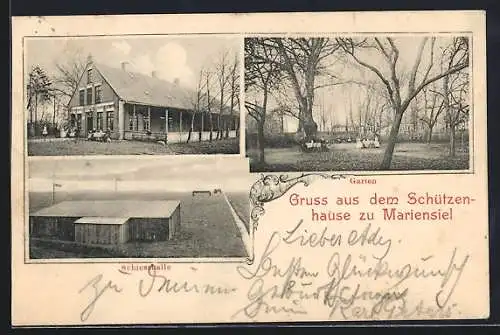 Garten
Gruss aus dem Schützen-
hause zu Mariensiel
Schiesshalle
Lieber Ady,
Besten Glückwunsch
zu Deinem Geburtstage
Dein Karl